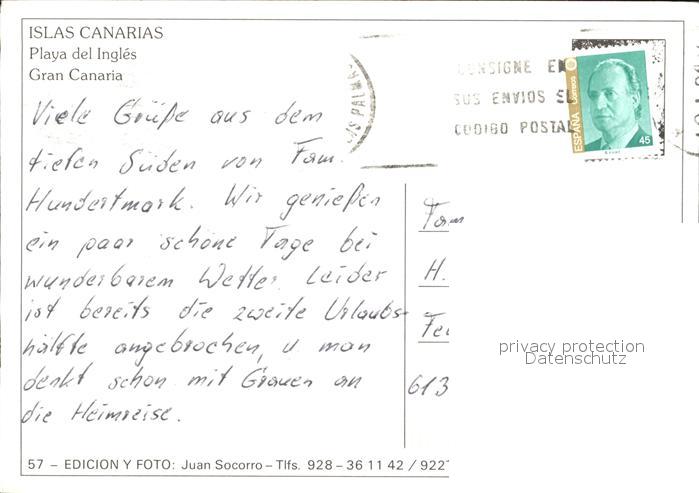 ISLAS CANARIAS
Playa del Inglés
Gran Canaria
CONSIGNE EN
SUS ENVIOS EL
CODIGO POSTAL
ESPAÑA Correos
45
Viele Grüße aus dem
tiefen Süden von Fam.
Hundertmark. Wir genießen
ein paar schöne Tage bei
wunderbarem Wetter. Leider
ist bereits die zweite Urlaubs-
hälfte angebrochen, u. man
denkt schon mit Grauen an
die Heimreise.
Fam
H.
613
privacy protection
Datenschutz
57 – EDICION Y FOTO: Juan Socorro – Tlfs. 928 - 36 11 42 / 922